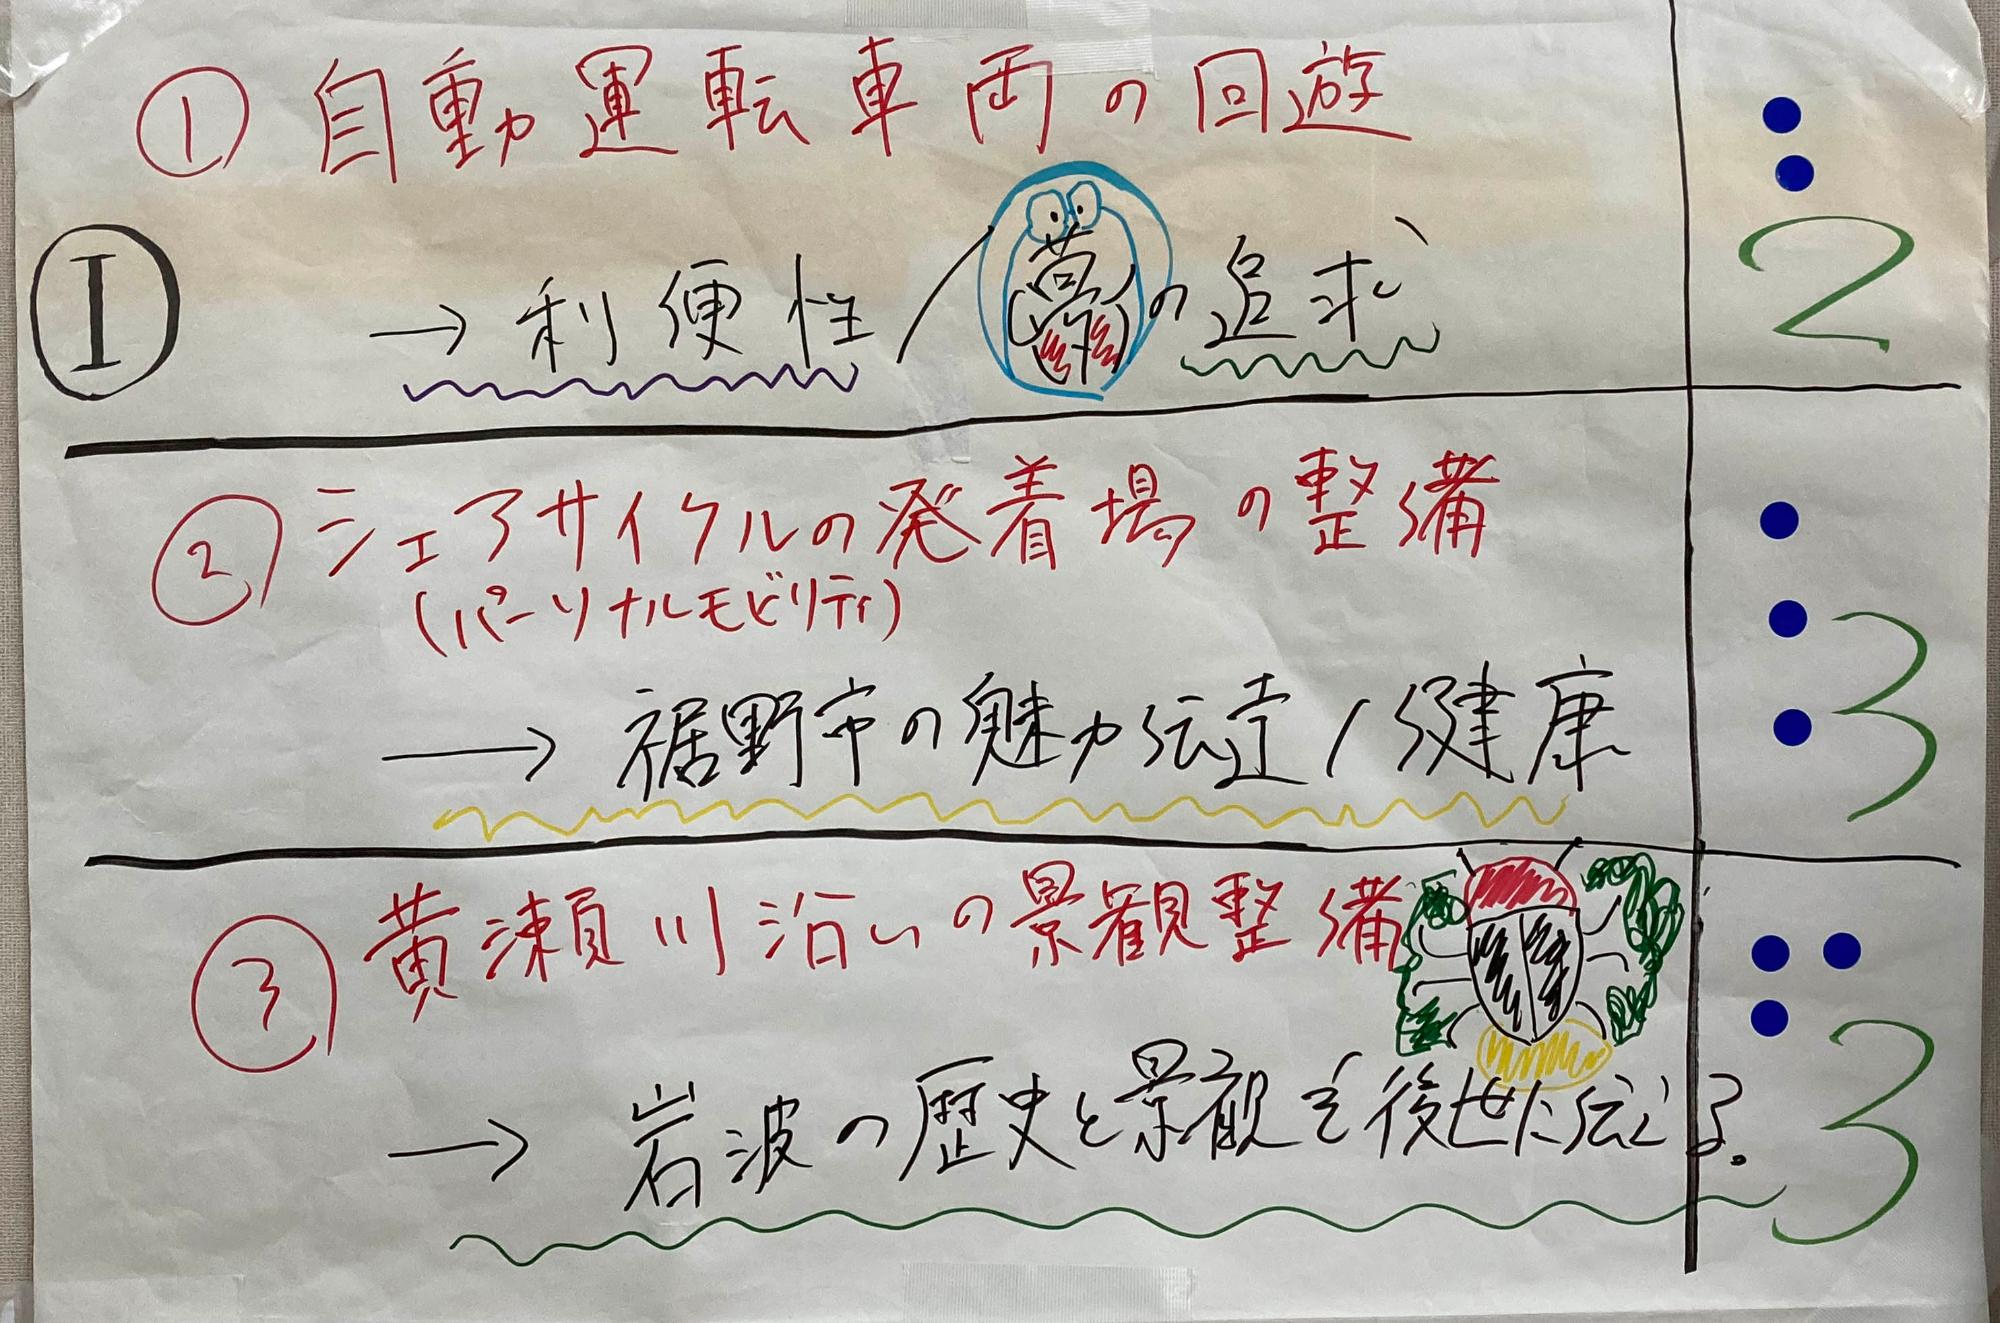 ① 自動運転車両の回遊
2
Ⅰ
→ 利便性/夢の追求
② シェアサイクルの発着場の整備
(パーソナルモビリティ)
3
→ 裾野市の魅力伝達/健康
③ 黄瀬川沿いの景観整備
→ 岩波の歴史と景観を後世に伝える。
3